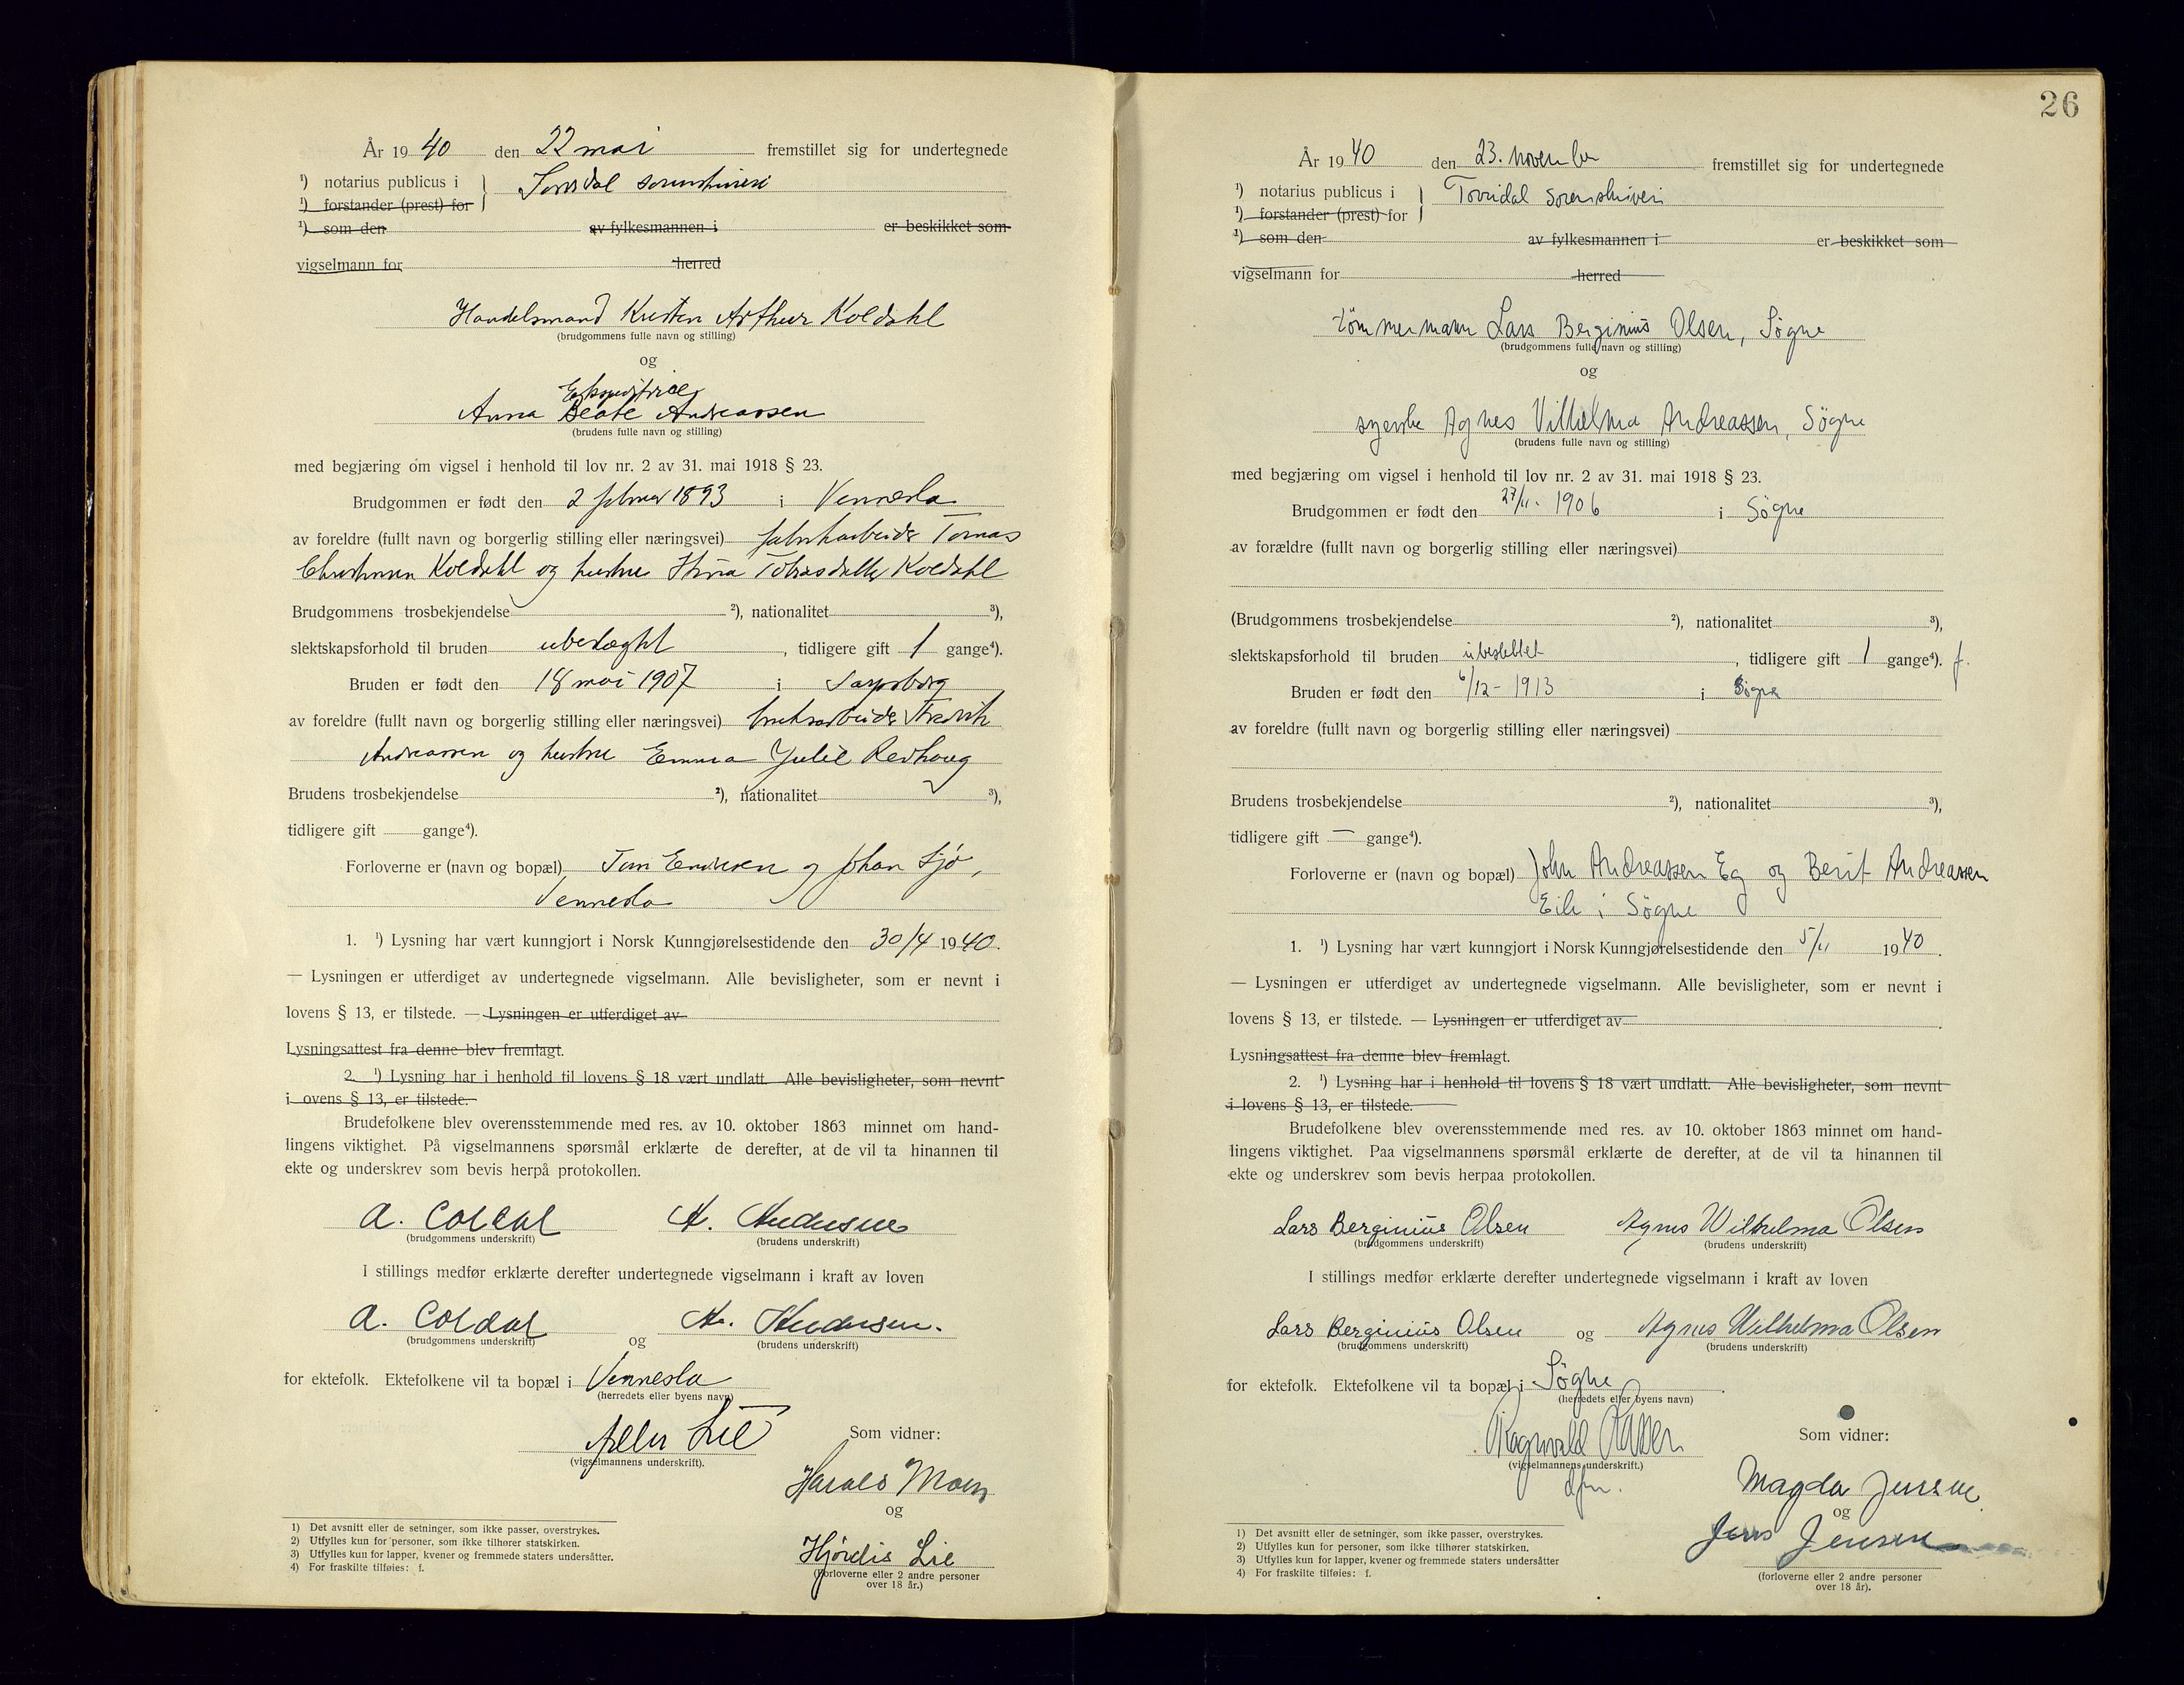 År 19 40 den 22 mai fremstillet sig for undertegnede
¹) notarius publicus i } Torridal sorenskriveri
¹) forstander (prest) for
¹) som den av fylkesmannen i er beskikket som
vigselmann for herred
Handelsmand Kristen Arthur Koldahl
(brudgommens fulle navn og stilling)
og
Ekspeditrice
Anna Beate Andreassen
(brudens fulle navn og stilling)
med begjæring om vigsel i henhold til lov nr. 2 av 31. mai 1918 § 23.
Brudgommen er født den 2 februar 1893 i Vennesla
av foreldre (fullt navn og borgerlig stilling eller næringsvei) fabrikarbeider Tomas
Christensen Koldahl og hustru Tobiasdatter Koldahl
Brudgommens trosbekjendelse ²), nationalitet ³),
slektskapsforhold til bruden ubeslægtet, tidligere gift 1 gange⁴).
Bruden er født den 18 mai 1907 i Sarpsborg
av foreldre (fullt navn og borgerlig stilling eller næringsvei) bruksarbeider Fredrik
Andreassen og hustru Emma Julie Redhoug
Brudens trosbekjendelse ²), nationalitet ³),
tidligere gift gange⁴).
Forloverne er (navn og bopæl) Tom og Johan
Vennesla
1. ¹) Lysning har vært kunngjort i Norsk Kunngjørelsestidende den 30/4 1940.
— Lysningen er utferdiget av undertegnede vigselmann. Alle bevisligheter, som er nevnt i
lovens § 13, er tilstede. — Lysningen er utferdiget av
Lysningsattest fra denne blev fremlagt.
2. ¹) Lysning har i henhold til lovens § 18 vært undlatt. Alle bevisligheter, som nevnt
i ovens § 13, er tilstede.
Brudefolkene blev overensstemmende med res. av 10. oktober 1863 minnet om hand-
lingens viktighet. På vigselmannens spørsmål erklærte de derefter, at de vil ta hinannen til
ekte og underskrev som bevis herpå protokollen.
A. Coldal A. Andersen
(brudgommens underskrift) (brudens underskrift)
I stillings medfør erklærte derefter undertegnede vigselmann i kraft av loven
A. Coldal og A. Andersen.
(brudgommens underskrift) (brudens underskrift)
for ektefolk. Ektefolkene vil ta bopæl i Vennesla
(herredets eller byens navn)
Lie
(vigselmannens underskrift).
Som vidner:
Harald Moen
og
Hjørdis Lie
(Forloverne eller 2 andre personer
over 18 år.)
1) Det avsnitt eller de setninger, som ikke passer, overstrykes.
2) Utfylles kun for personer, som ikke tilhører statskirken.
3) Utfylles kun for lapper, kvener og fremmede staters undersåtter.
4) For fraskilte tilføies: f.
26
År 19 40 den 23. november fremstillet sig for undertegnede
¹) notarius publicus i } Torridal sorenskriveri
¹) forstander (prest) for
¹) som den av fylkesmannen i er beskikket som
vigselmann for herred
tömmermann Lars Berginius Olsen, Sögne
(brudgommens fulle navn og stilling)
og
syerske Agnes Vilhelma Andreassen, Sögne
(brudens fulle navn og stilling)
med begjæring om vigsel i henhold til lov nr. 2 av 31. mai 1918 § 23.
Brudgommen er født den 27/11- 1906 i Sögne
av forældre (fullt navn og borgerlig stilling eller næringsvei)
(Brudgommens trosbekjendelse ²), nationalitet ³),
slektskapsforhold til bruden ubeslektet, tidligere gift 1 gange⁴). f.
Bruden er født den 6/12- 1913 i Sögne
av foreldre (fullt navn og borgerlig stilling eller næringsvei)
Brudens trosbekjendelse ²), nationalitet ³),
tidligere gift — gange⁴).
Forloverne er (navn og bopæl) John Andreassen Eg og Berit Andreassen
Eik i Sögne
1. ¹) Lysning har vært kunngjort i Norsk Kunngjørelsestidende den 5/11 1940.
— Lysningen er utferdiget av undertegnede vigselmann. Alle bevisligheter, som er nevnt i
lovens § 13, er tilstede. — Lysningen er utferdiget av
Lysningsattest fra denne blev fremlagt.
2. ¹) Lysning har i henhold til lovens § 18 vært undlatt. Alle bevisligheter, som nevnt
i lovens § 13, er tilstede.
Brudefolkene blev overensstemmende med res. av 10. oktober 1863 minnet om hand-
lingens viktighet. Paa vigselmannens spørsmål erklærte de derefter, at de vil ta hinannen til
ekte og underskrev som bevis herpaa protokollen.
Lars Berginius Olsen Agnes Wilhelma Olsen
(brudgommens underskrift) (brudens underskrift)
I stillings medfør erklærte derefter undertegnede vigselmann i kraft av loven
Lars Berginius Olsen og Agnes Wilhelma Olsen
(brudgommens underskrift) (brudens underskrift)
for ektefolk. Ektefolkene vil ta bopæl i Sögne.
(herredets eller byens navn)
Ragnvald
(vigselmannens underskrift.)
dfm.
Som vidner:
Magda Jensen
og
Jens Jensen
(forloverne eller 2 andre personer
over 18 år).
1) Det avsnitt eller de setninger, som ikke passer, overstrykes.
2) Utfylles kun for personer, som ikke tilhører statskirken.
3) Utfylles kun for lapper, kvener og fremmede staters undersåtter
4) For fraskilte tilføies: f.